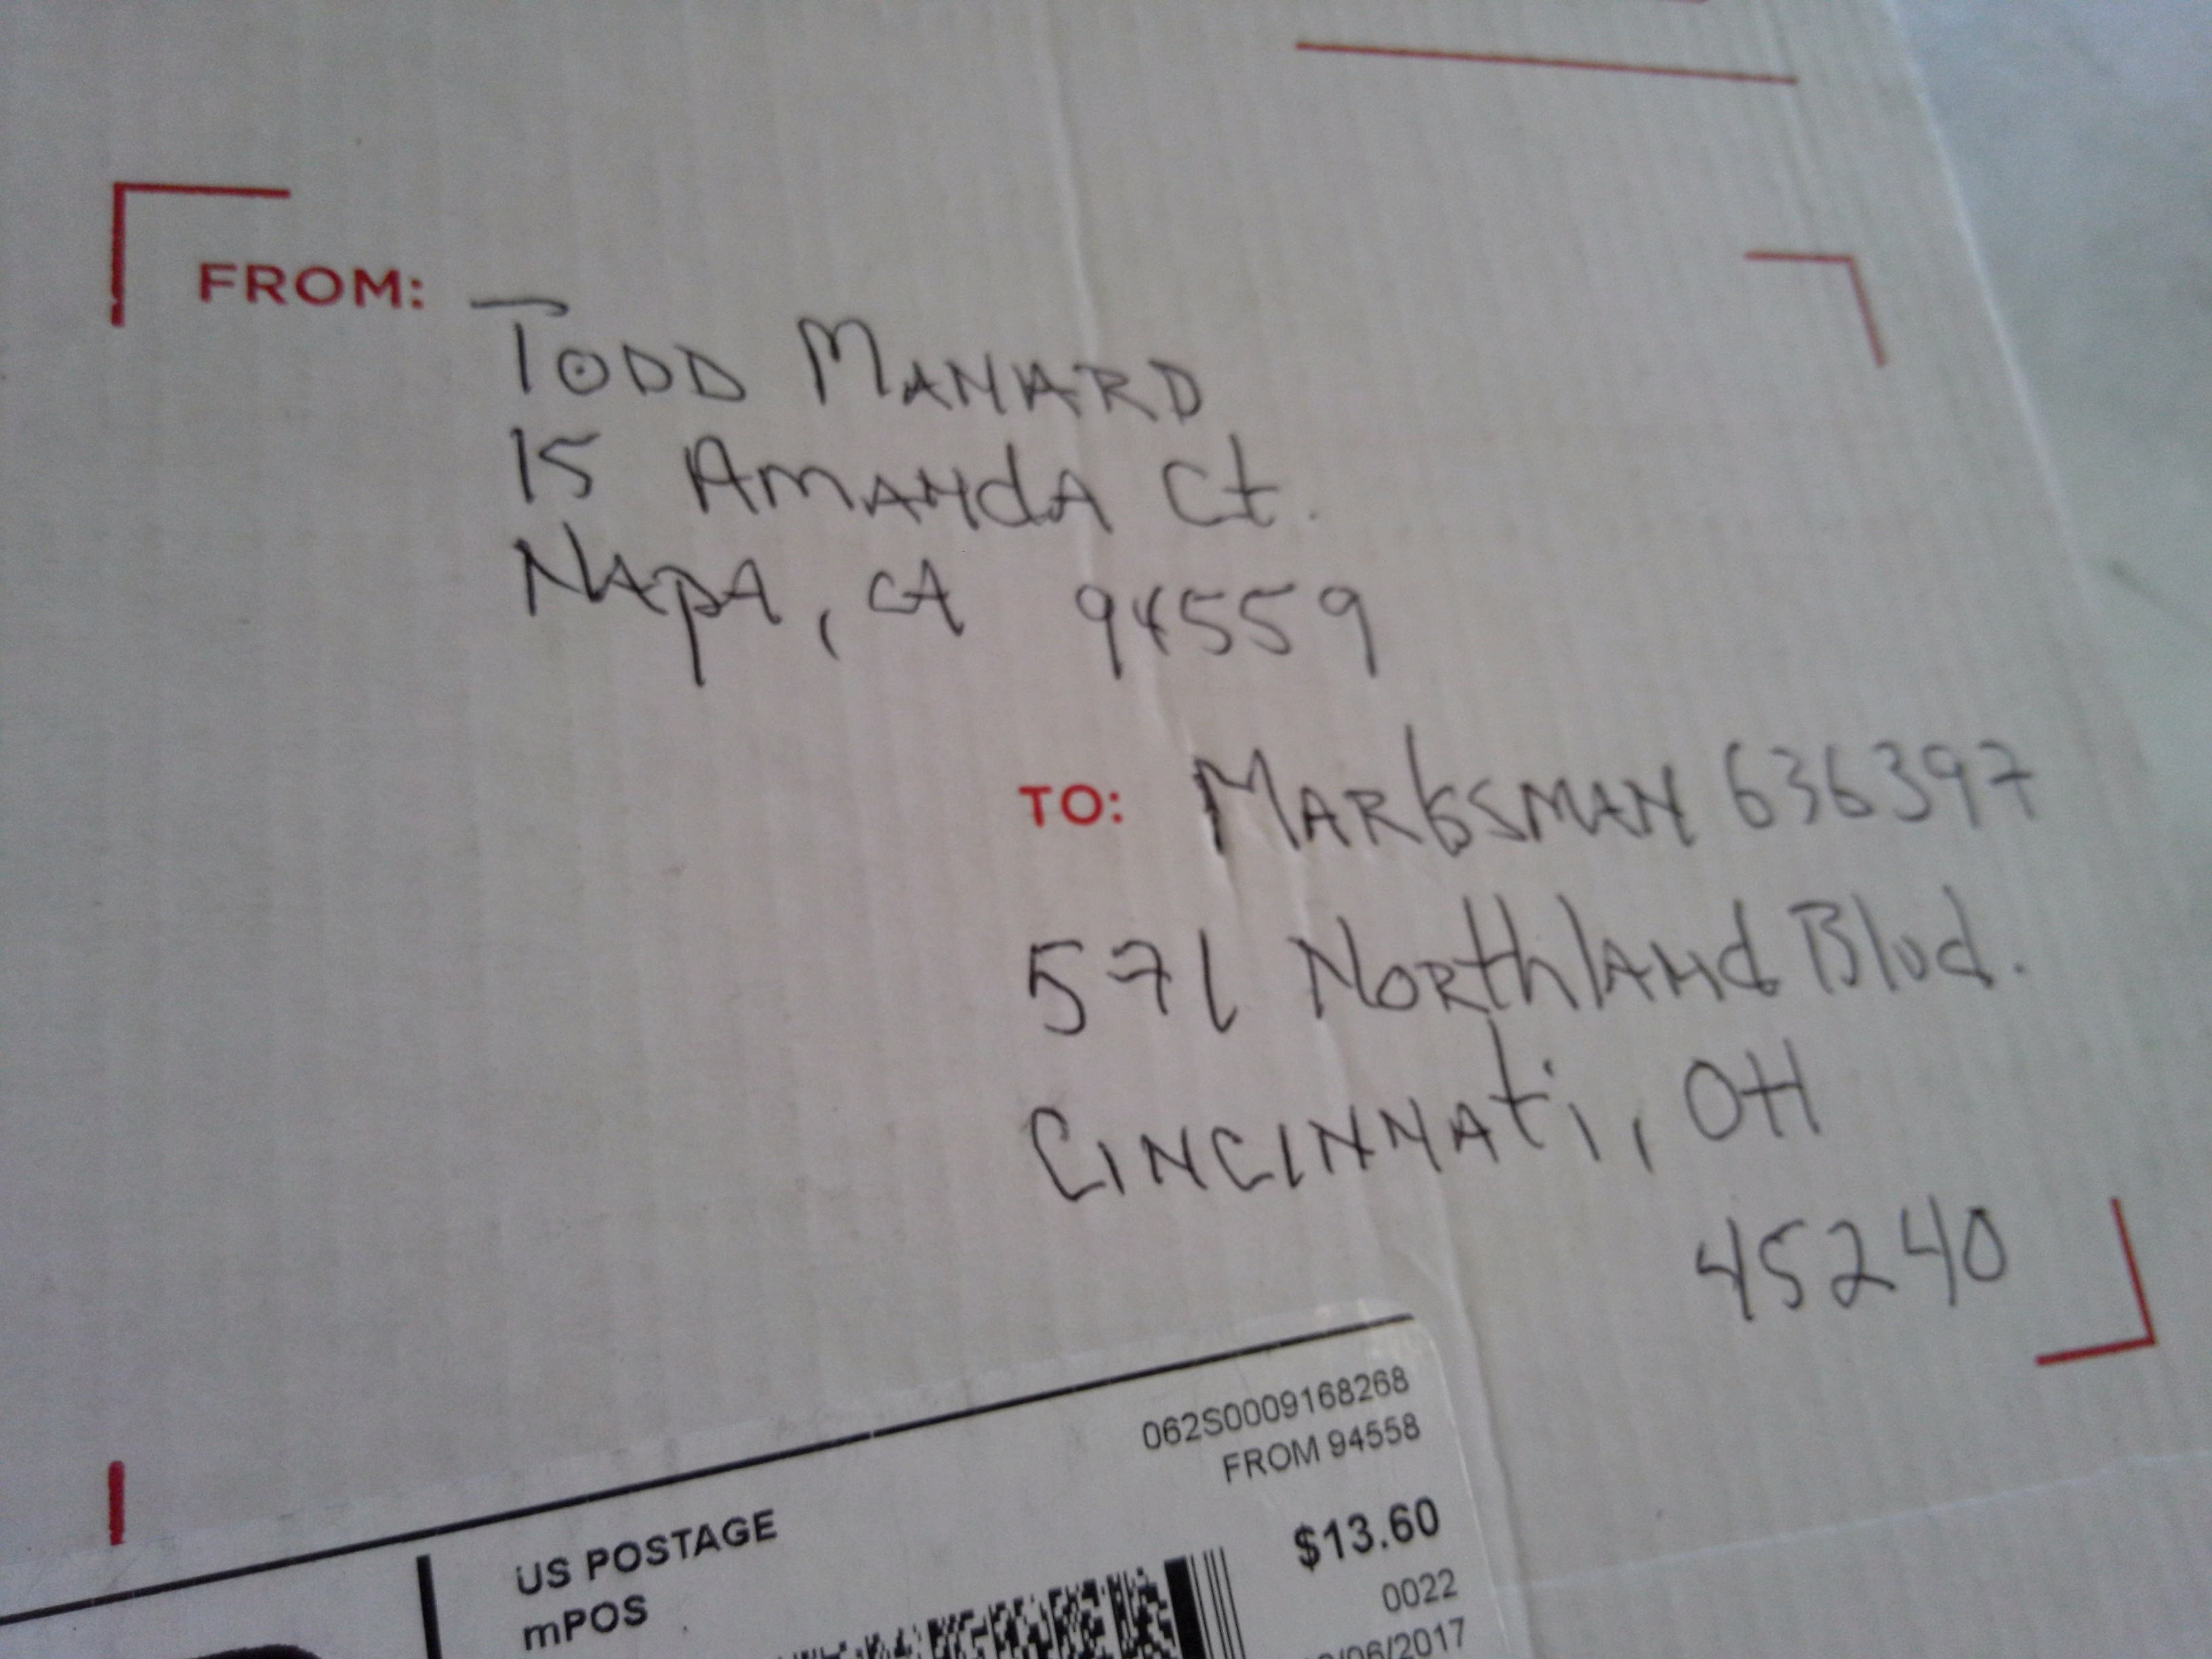 FROM: TODD MANARD
15 AMANdA Ct.
NAPA, CA 94559
TO: MARKSMAN 636397
571 NORthlANd Blvd.
CINCINNAti, OH
45240
062S0009168268
FROM 94558
US POSTAGE
$13.60
mPOS
0022
/06/2017